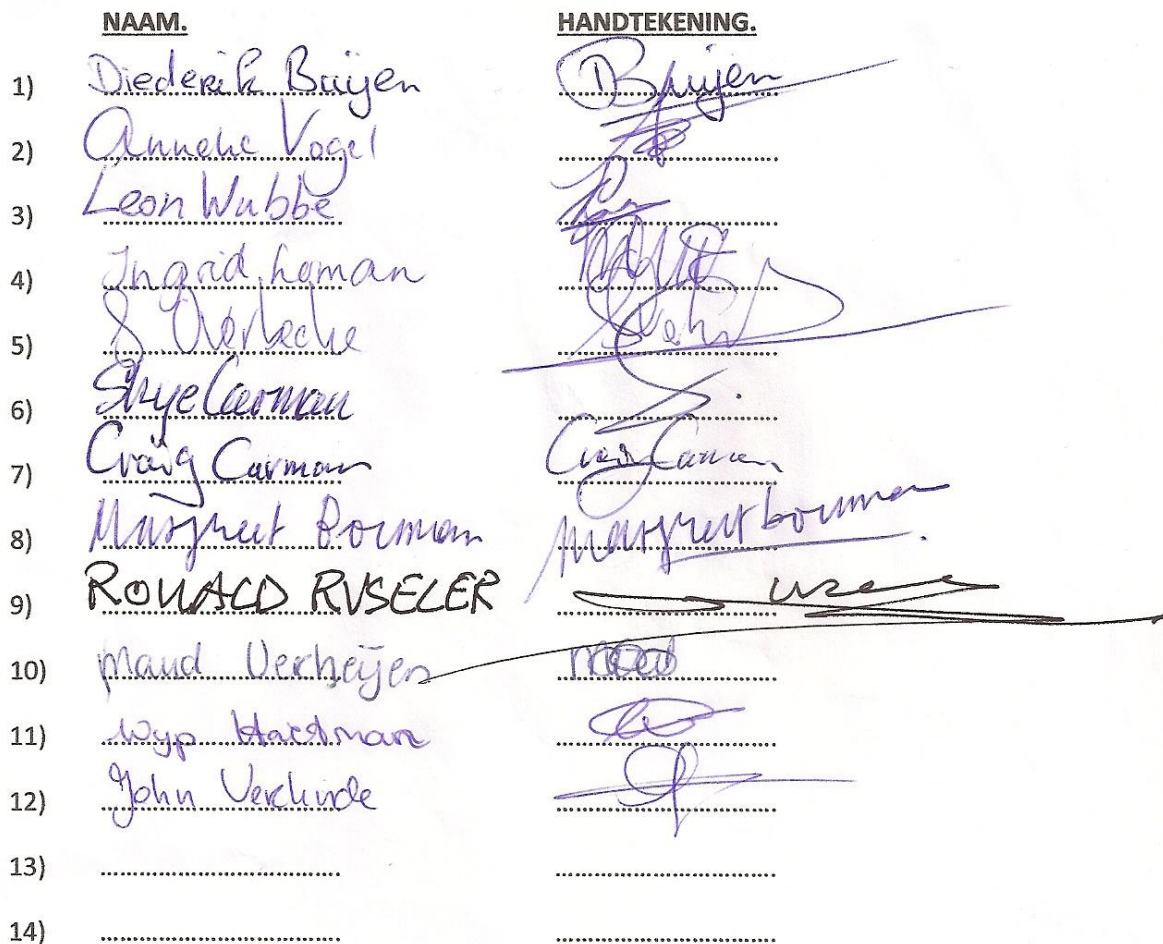 NAAM. HANDTEKENING.
1) Diederik Buijen DBuijen
2) Anneke Vogel
3) Leon Wubbe
4) Ingrid Loman
5) S Overbeeke
6) Skye Carman
7) Craig Carman Craig Carman
8) Margreet Bouman Margreet bouman
9) RONALD RUSELER
10) Maud Verheijen Maud
11) Wyp Hartman
12) John Verclunde
13)
14)